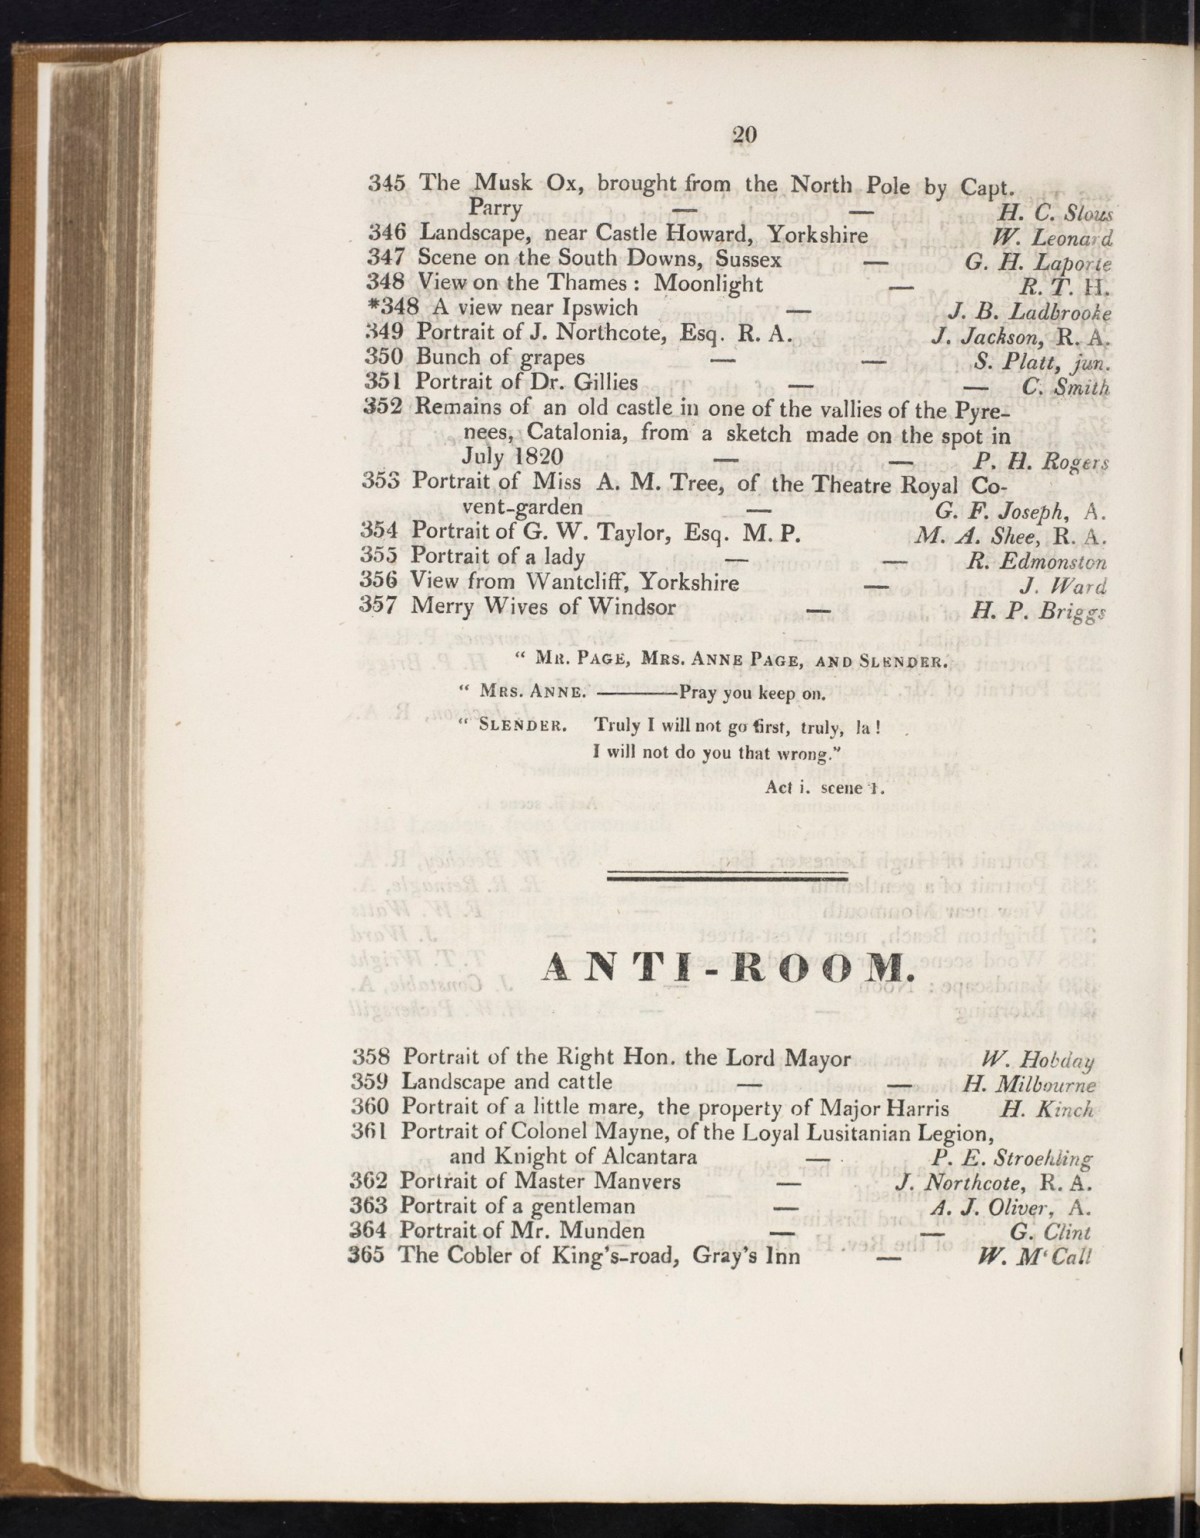 20
345 The Musk Ox, brought from the North Pole by Capt.
Parry — — H. C. Slous
346 Landscape, near Castle Howard, Yorkshire W. Leonard
347 Scene on the South Downs, Sussex — G. H. Laporte
348 View on the Thames : Moonlight — R. T. H.
*348 A view near Ipswich — J. B. Ladbrooke
349 Portrait of J. Northcote, Esq. R. A. J. Jackson, R. A.
350 Bunch of grapes — — S. Platt, jun.
351 Portrait of Dr. Gillies — — C. Smith
352 Remains of an old castle in one of the vallies of the Pyre-
nees, Catalonia, from a sketch made on the spot in
July 1820 — — P. H. Rogers
353 Portrait of Miss A. M. Tree, of the Theatre Royal Co-
vent-garden — G. F. Joseph, A.
354 Portrait of G. W. Taylor, Esq. M. P. M. A. Shee, R. A.
355 Portrait of a lady — — R. Edmonston
356 View from Wantcliff, Yorkshire — J. Ward
357 Merry Wives of Windsor — H. P. Briggs
“ Mr. Page, Mrs. Anne Page, and Slender.
“ Mrs. Anne. ———Pray you keep on.
“ Slender. Truly I will not go first, truly, la !
I will not do you that wrong.”
Act i. scene 1.
ANTI-ROOM.
358 Portrait of the Right Hon. the Lord Mayor W. Hobday
359 Landscape and cattle — — H. Milbourne
360 Portrait of a little mare, the property of Major Harris H. Kinch
361 Portrait of Colonel Mayne, of the Loyal Lusitanian Legion,
and Knight of Alcantara — P. E. Stroehling
362 Portrait of Master Manvers — J. Northcote, R. A.
363 Portrait of a gentleman — A. J. Oliver, A.
364 Portrait of Mr. Munden — — G. Clint
365 The Cobler of King's-road, Gray's Inn — W. M‘Call